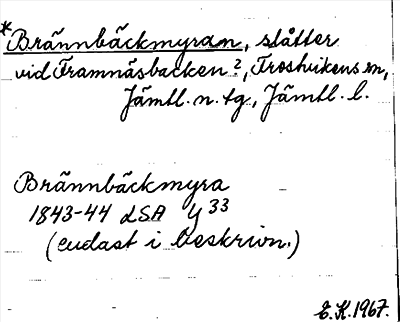 *Brännbäckmyran, slåtter
vid Framnäsbacken?, Frostvikens sn,
Jämtl. n. tg., Jämtl. l.
Brännbäckmyra
1843-44 LSA Y 33
(endast i beskrivn.)
E.K. 1967.